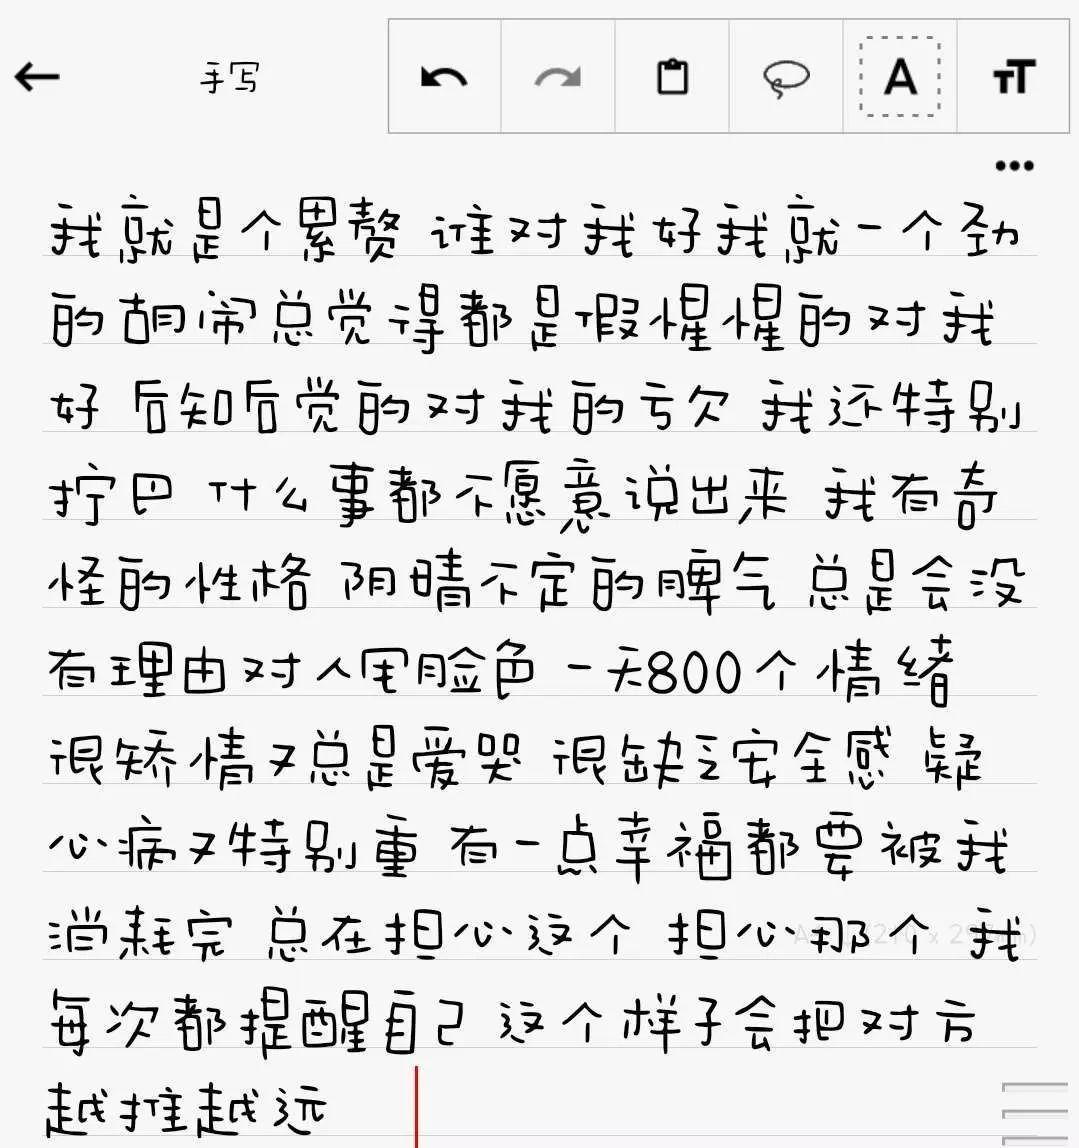 手写
A
TT
我就是个累赘 谁对我好我就一个劲
的胡闹总觉得都是假惺惺的对我
好 后知后觉的对我的亏欠 我还特别
拧巴 什么事都不愿意说出来 我有奇
怪的性格 阴晴不定的脾气 总是会没
有理由对人甩脸色 一天800个情绪
很矫情又总是爱哭 很缺乏安全感 疑
心病又特别重 有一点幸福都要被我
消耗完 总在担心这个 担心那个 我
每次都提醒自己 这个样子会把对方
越推越远